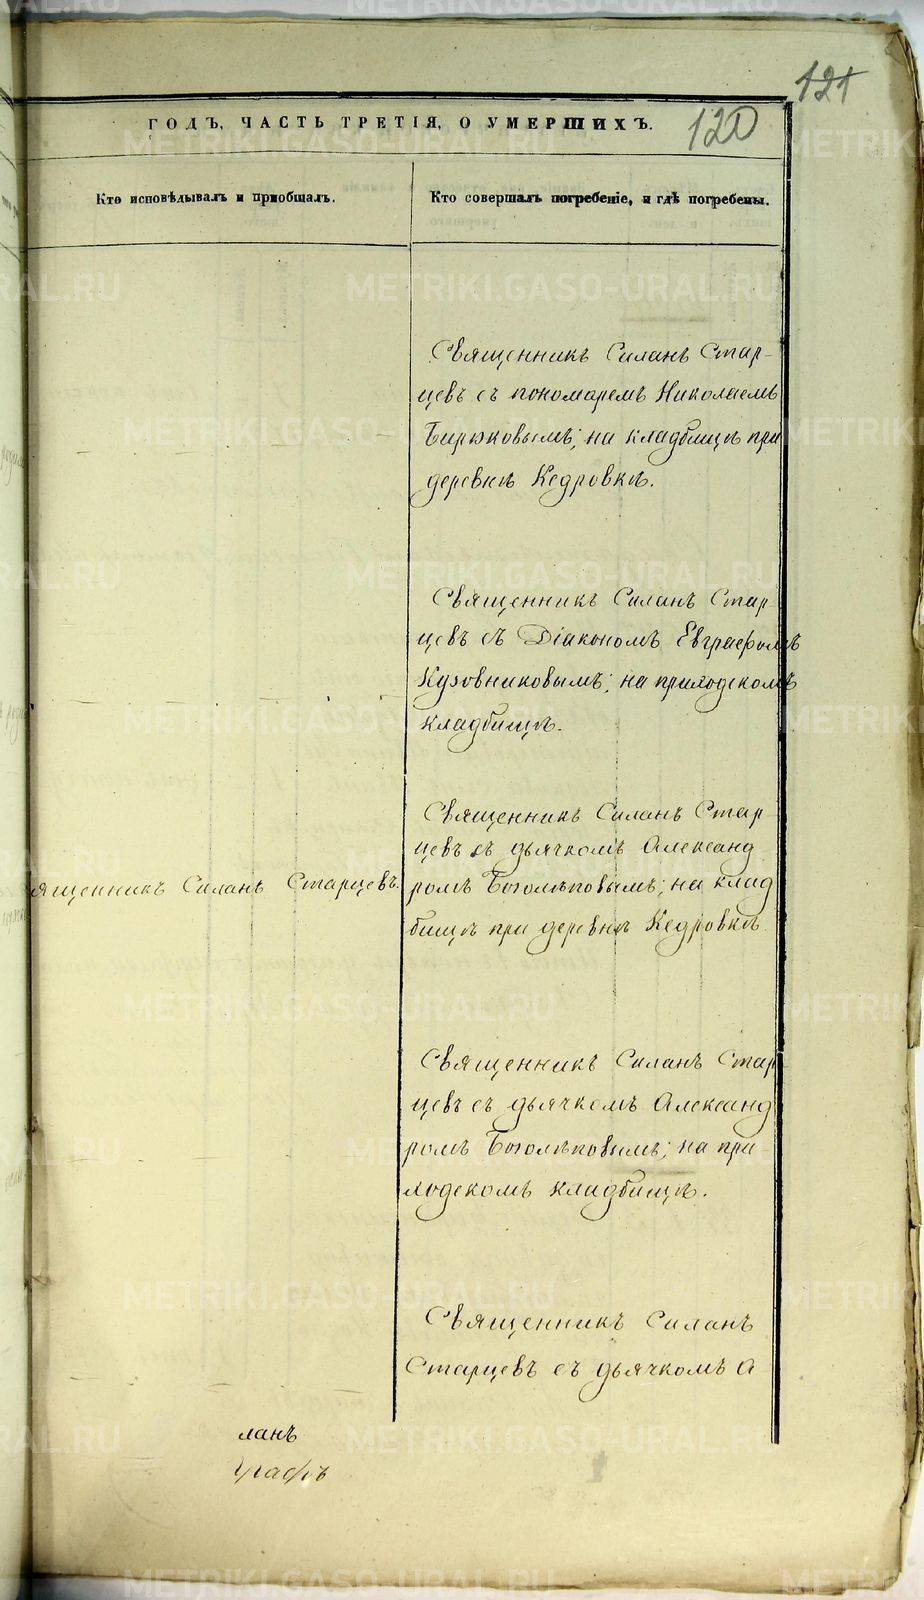 121
ГОДЪ, ЧАСТЬ ТРЕТІЯ, О УМЕРШИХЪ.
120
Кто исповѣдывалъ и пріобщалъ.
Кто совершалъ погребеніе, и гдѣ погребены.
Священникъ Силанъ Стар-
цевъ съ пономаремъ Николаемъ
Бирюковымъ; на кладбищѣ при
деревнѣ Кедровкѣ.
Священникъ Силанъ Стар-
цевъ съ Діакономъ Евграфомъ
Кузовниковымъ; на приходскомъ
кладбищѣ.
Священникъ Силанъ Стар-
цевъ съ дьячкомъ Александ
ромъ Боголѣповымъ; на клад
бищѣ при деревнѣ Кедровкѣ.
ященникъ Силанъ Старцевъ.
Священникъ Силанъ Стар
цевъ съ дьячкомъ Александ
ромъ Боголѣповымъ; на при-
ходскомъ кладбищѣ.
Священникъ Силанъ
Старцевъ съ дьячкомъ А
ланъ
графъ
METRIKI.GASO-URAL.RU